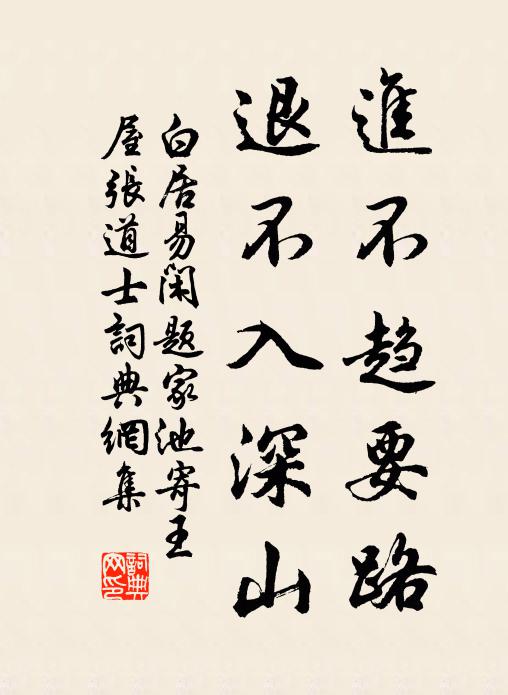 進不趋要路
退不入深山
白居易闲题家池寄王
屋張道士詞典網集
詞典
网印